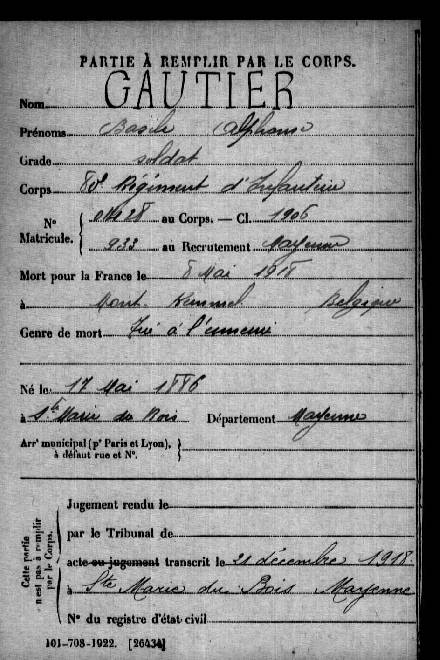 PARTIE À REMPLIR PAR LE CORPS.
Nom GAUTIER
Prénoms Basile Alphonse
Grade soldat
Corps 80e Régiment d'Infanterie
No Matricule. { 28 au Corps. — Cl. 1906
933 au Recrutement Mayenne
Mort pour la France le 8 Mai 1918
à Mont. Kemmel Belgique
Genre de mort Tué à l'ennemi
Né le 17 Mai 1886
à Ste Marie du Bois Département Mayenne
Arrt municipal (pr Paris et Lyon), à défaut rue et No. }
Cette partie n'est pas à remplir par le Corps.
Jugement rendu le
par le Tribunal de
acte ou jugement transcrit le 21 décembre 1918.
à Ste Marie du Bois Mayenne
No du registre d'état civil
101-708-1922. [26434]